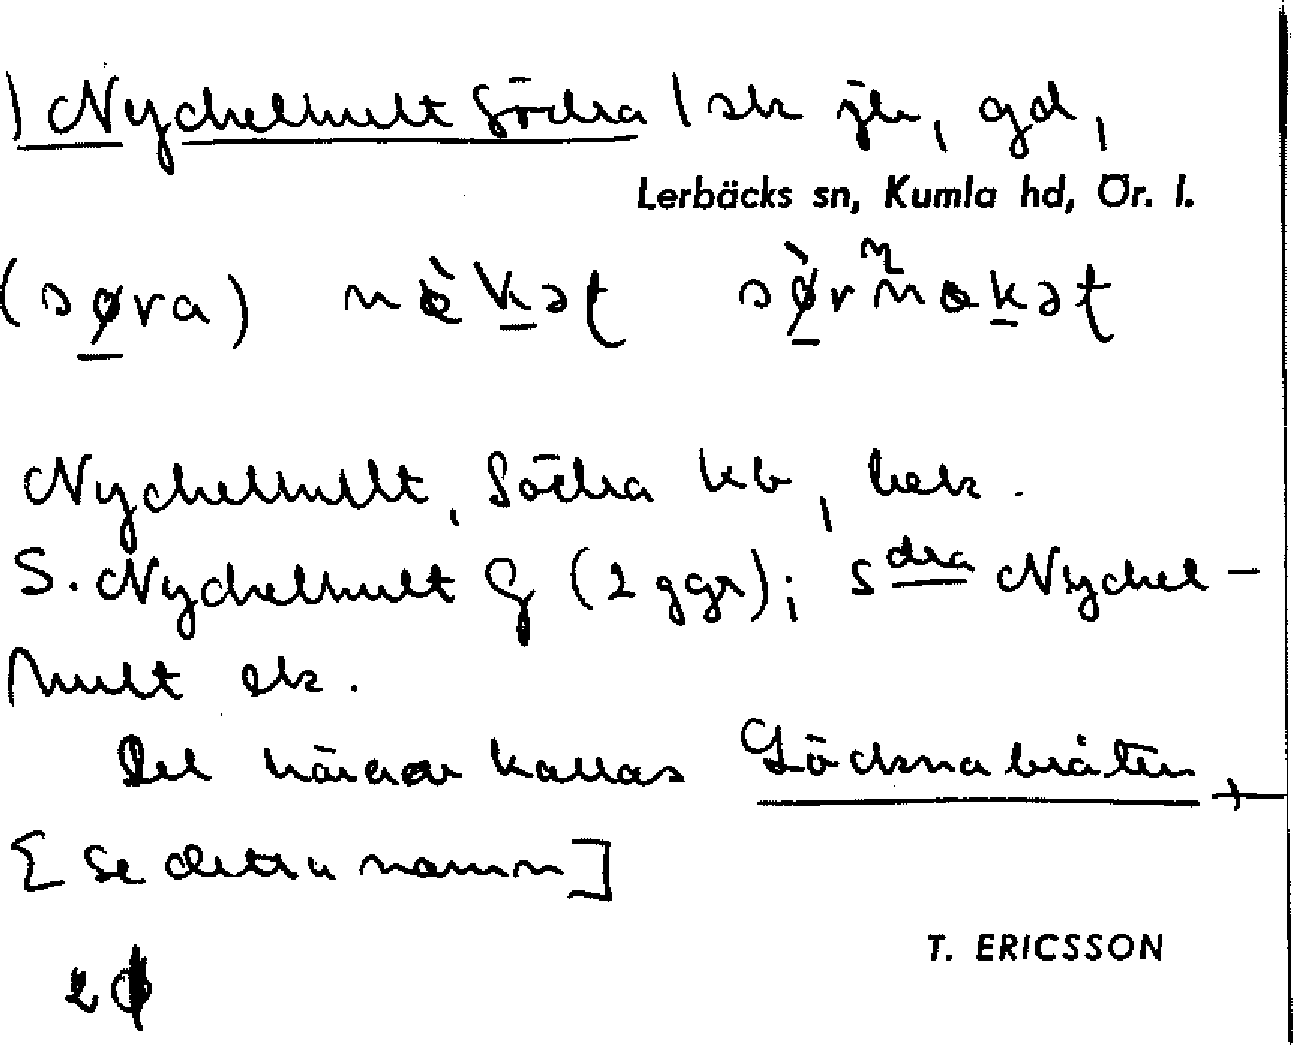 ) Nyckelhult Södra / sk jb, gd,
Lerbäcks sn, Kumla hd, Ör. l.
(søra) nèkət sø̀rnokət
Nyckelhullt, Södra kb, hek.
S. Nyckelhult G (2 ggr); s dra Nyckel-
hult ek.
Del härav kallas Göcksnabråten,
[se detta namn]
T. ERICSSON